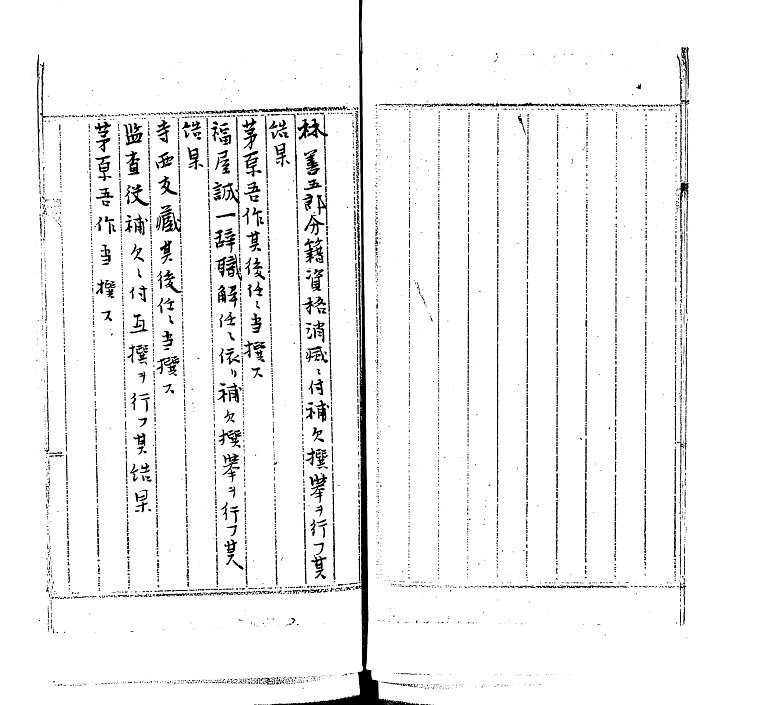 林善五郎分籍資格消滅ニ付補欠撰挙ヲ行フ其
結果
茅原吾作其後任ニ当撰ス
福屋誠一辞職解任ニ依リ補欠撰挙ヲ行フ其
結果
寺西友蔵其後任ニ当撰ス
監査役補欠ニ付互撰ヲ行フ其結果
茅原吾作当撰ス